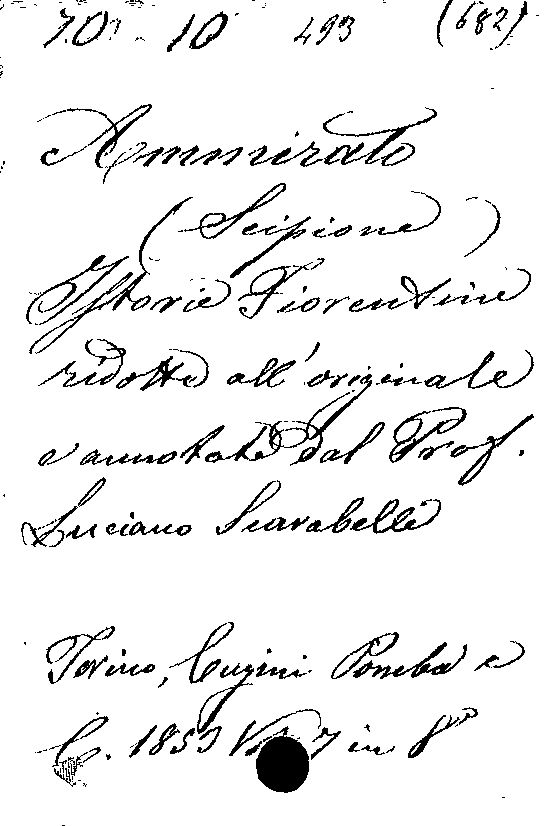 70 10 493 (682)
Ammirato
(Scipione)
Istorie Fiorentine
ridotte all'originale
e annotate dal Prof.
Luciano Scarabelli
Torino, Cugini Pomba e
C. 1853 7 in 8°